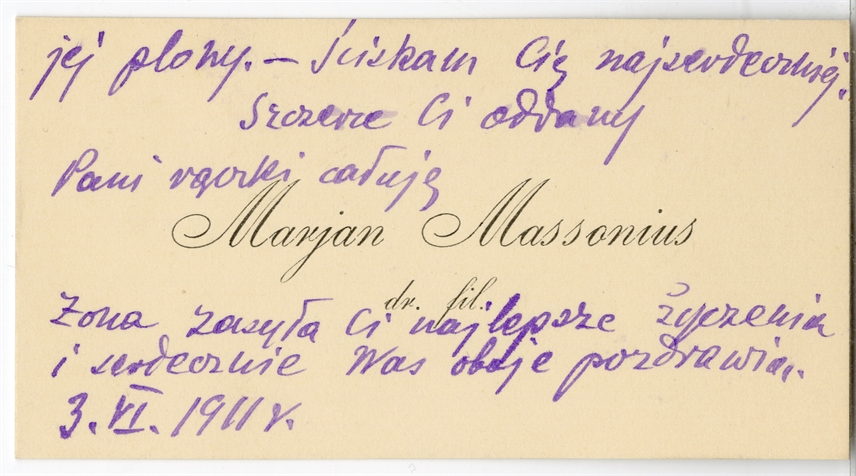 jej plony. – Ściskam Cię najserdeczniej.
Szczerze Ci oddany
Pani rączki całuję
Marjan Massonius
dr. fil.
Żona zasyła Ci najlepsze życzenia
i serdecznie Was oboje pozdrawia.
3. VI. 1911 r.